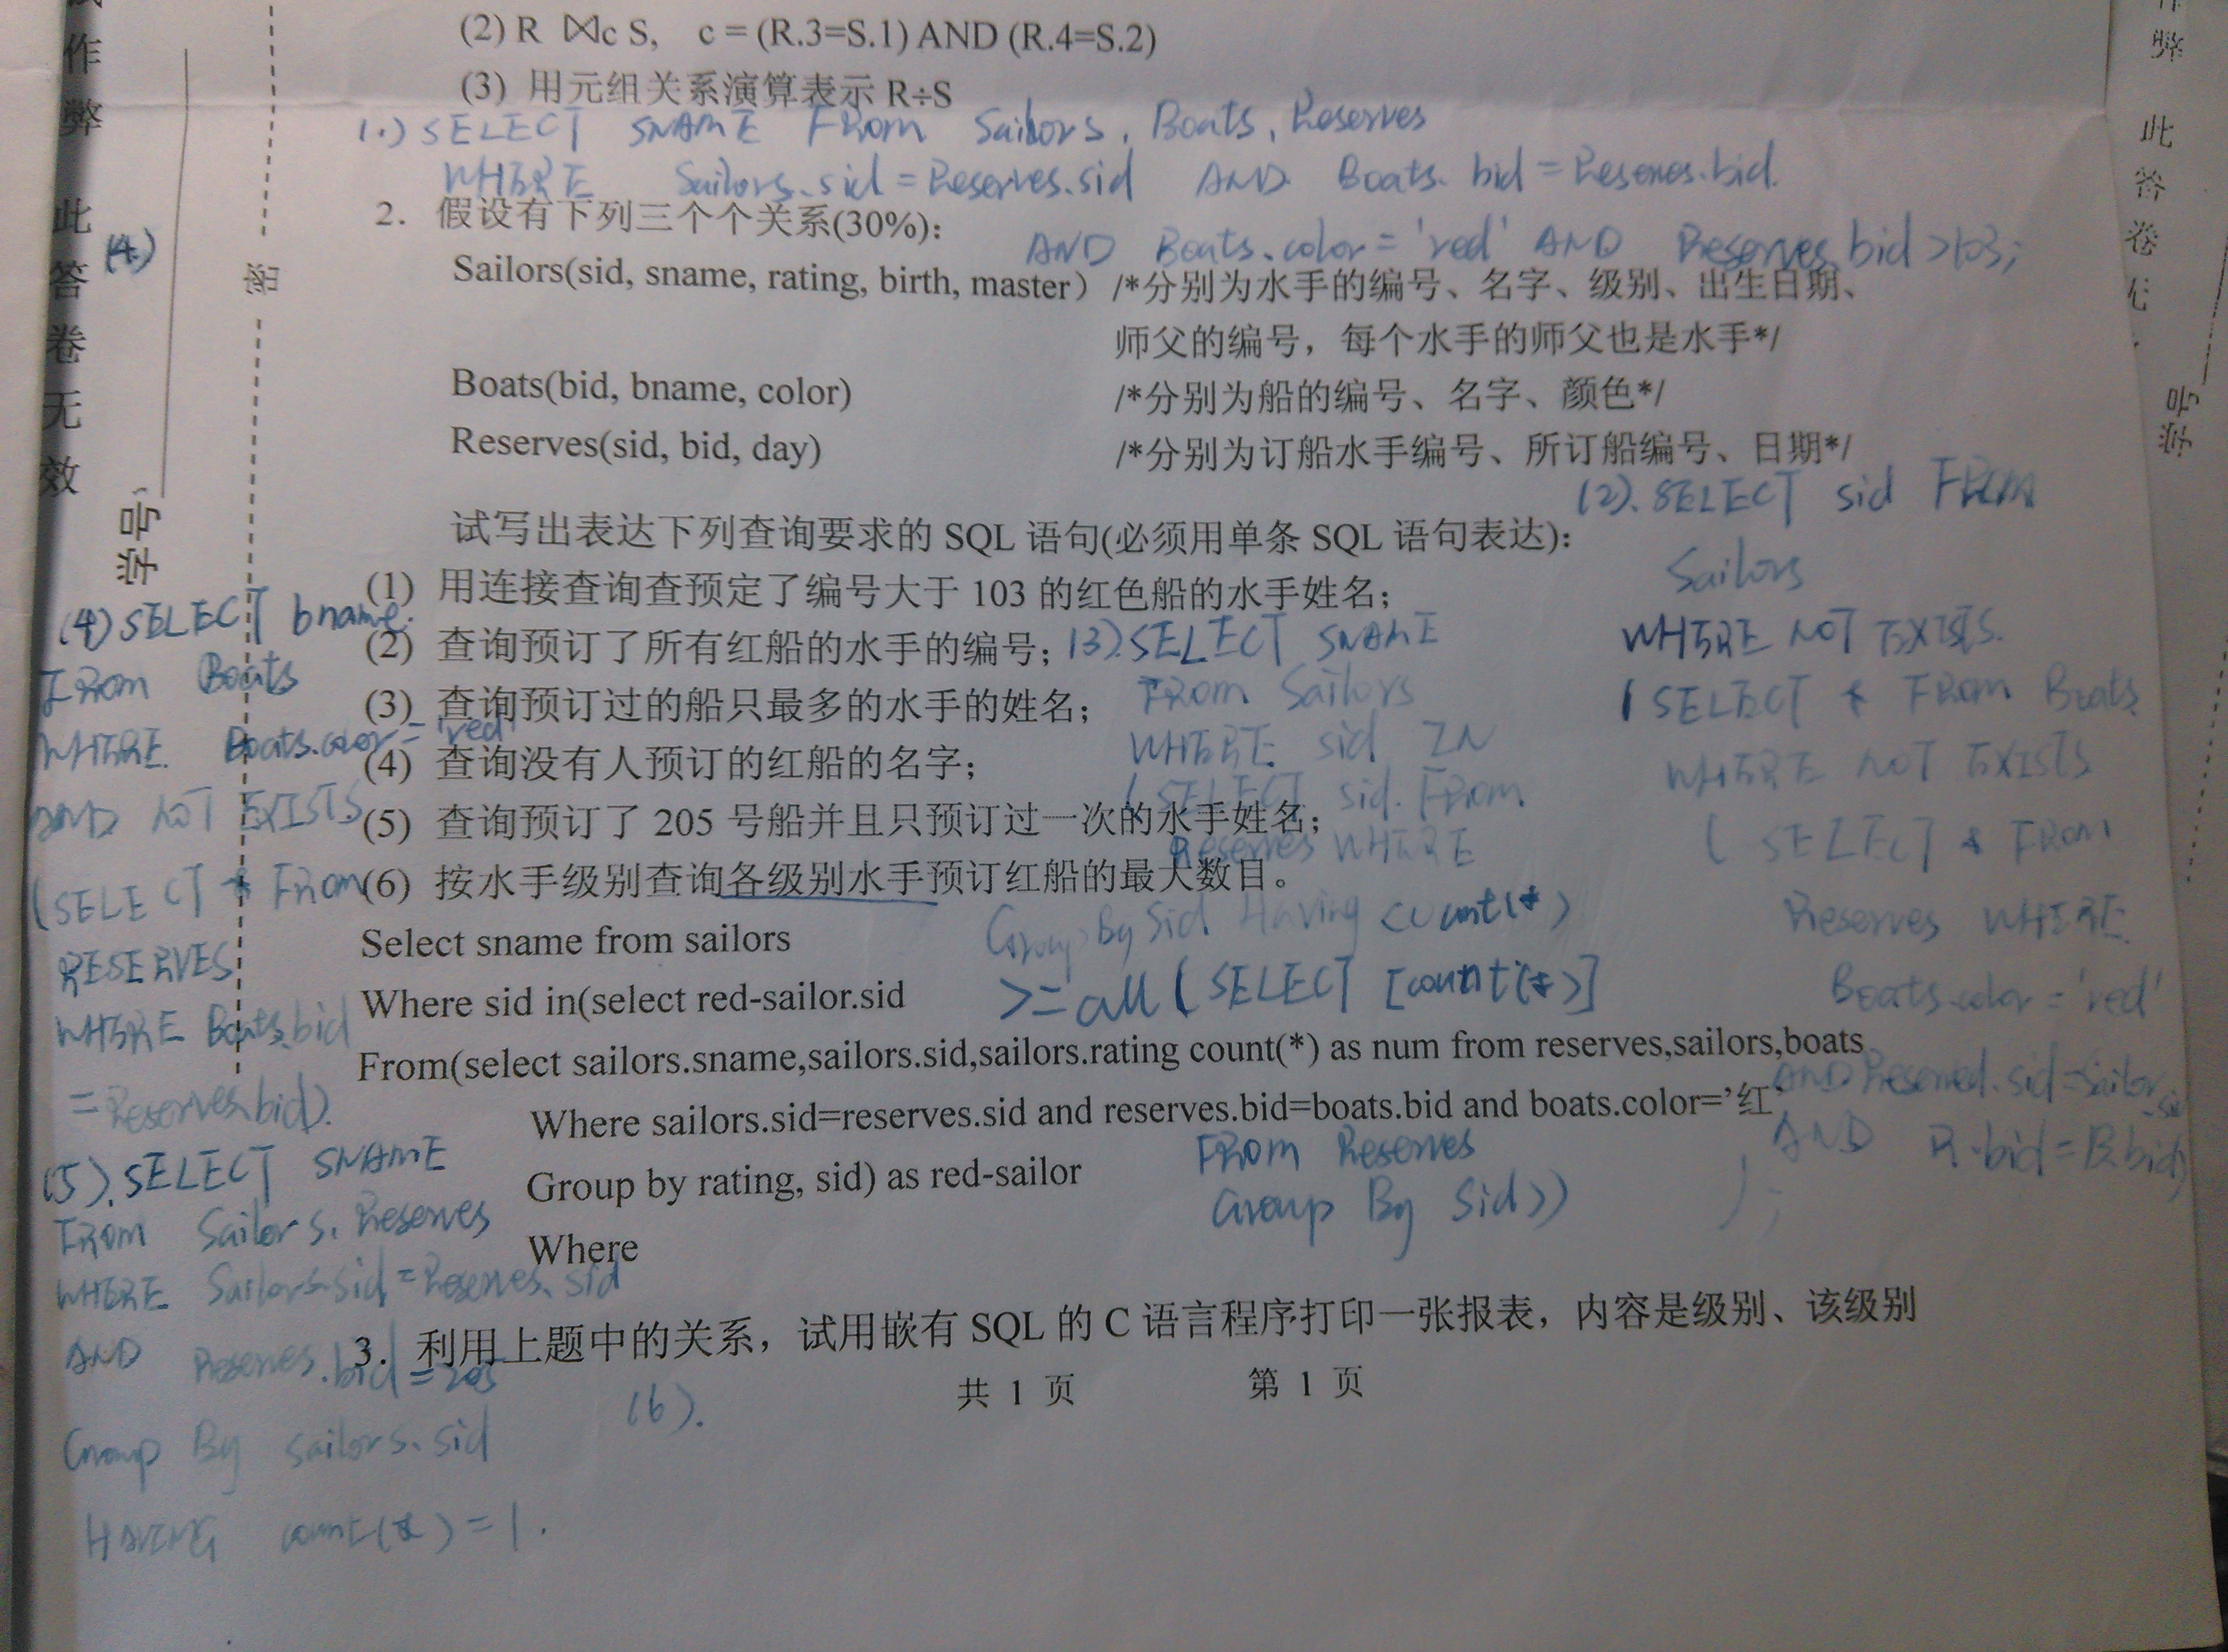 (2) R ⋈c S, c = (R.3=S.1) AND (R.4=S.2)
(3) 用元组关系演算表示 R÷S
1.) SELECT SNAME FROM Sailors, Boats, Reserves
WHERE Sailors.sid = Reserves.sid AND Boats.bid = Reserves.bid.
AND Boats.color = 'red' AND Reserves.bid >103;
2. 假设有下列三个个关系(30%):
Sailors(sid, sname, rating, birth, master) /*分别为水手的编号、名字、级别、出生日期、
师父的编号，每个水手的师父也是水手*/
Boats(bid, bname, color) /*分别为船的编号、名字、颜色*/
Reserves(sid, bid, day) /*分别为订船水手编号、所订船编号、日期*/
试写出表达下列查询要求的 SQL 语句(必须用单条 SQL 语句表达):
(1) 用连接查询查预定了编号大于 103 的红色船的水手姓名;
(2) 查询预订了所有红船的水手的编号;
(3) 查询预订过的船只最多的水手的姓名;
(4) 查询没有人预订的红船的名字;
(5) 查询预订了 205 号船并且只预订过一次的水手姓名;
(6) 按水手级别查询各级别水手预订红船的最大数目。
Select sname from sailors
Where sid in(select red-sailor.sid
From(select sailors.sname,sailors.sid,sailors.rating count(*) as num from reserves,sailors,boats
Where sailors.sid=reserves.sid and reserves.bid=boats.bid and boats.color='红'
Group by rating, sid) as red-sailor
Where
3. 利用上题中的关系，试用嵌有 SQL 的 C 语言程序打印一张报表，内容是级别、该级别
共 1 页 第 1 页
(2). SELECT sid FROM
Sailors
WHERE NOT EXISTS.
( SELECT * FROM Boats
WHERE NOT EXISTS
( SELECT * FROM
Reserves WHERE
Boats.color = 'red'
AND Reserved.sid = Sailor.sid
AND R.bid = B.bid)
);
(3). SELECT SNAME
FROM Sailors
WHERE sid IN
( SELECT sid. FROM
Reserves WHERE
Group By Sid Having count(*)
>= all ( SELECT [count(*)]
FROM Reserves
Group By Sid))
(4.)
(4) SELECT bname.
FROM Boats
WHERE Boats.color = 'red'
AND NOT EXISTS
(SELECT * FROM
RESERVES
WHERE Boats.bid
= Reserves.bid).
(5). SELECT SNAME
FROM Sailors, Reserves
WHERE Sailors.sid = Reserves.sid
AND Reserves.bid = 205
Group By sailors.sid
HAVING count(*) = 1.
(6).
作弊 此答卷无效
学号
密
弊 此答卷
学号